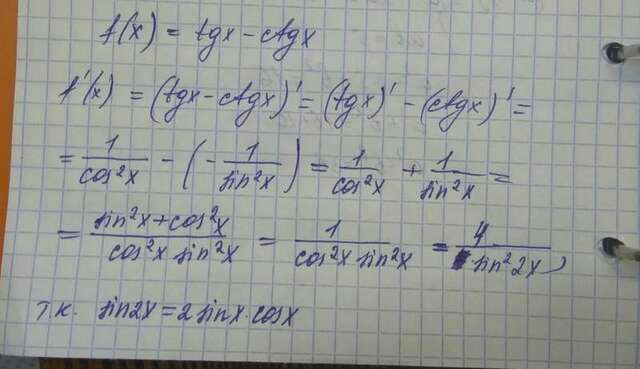 f(x) = tgx - ctgx
f'(x) = (tgx - ctgx)' = (tgx)' - (ctgx)' =
= 1/cos²x - (- 1/sin²x) = 1/cos²x + 1/sin²x =
= sin²x + cos²x / cos²x sin²x = 1/cos²x sin²x = 4/sin²2x,
т.к. sin2x = 2 sinx · cosx